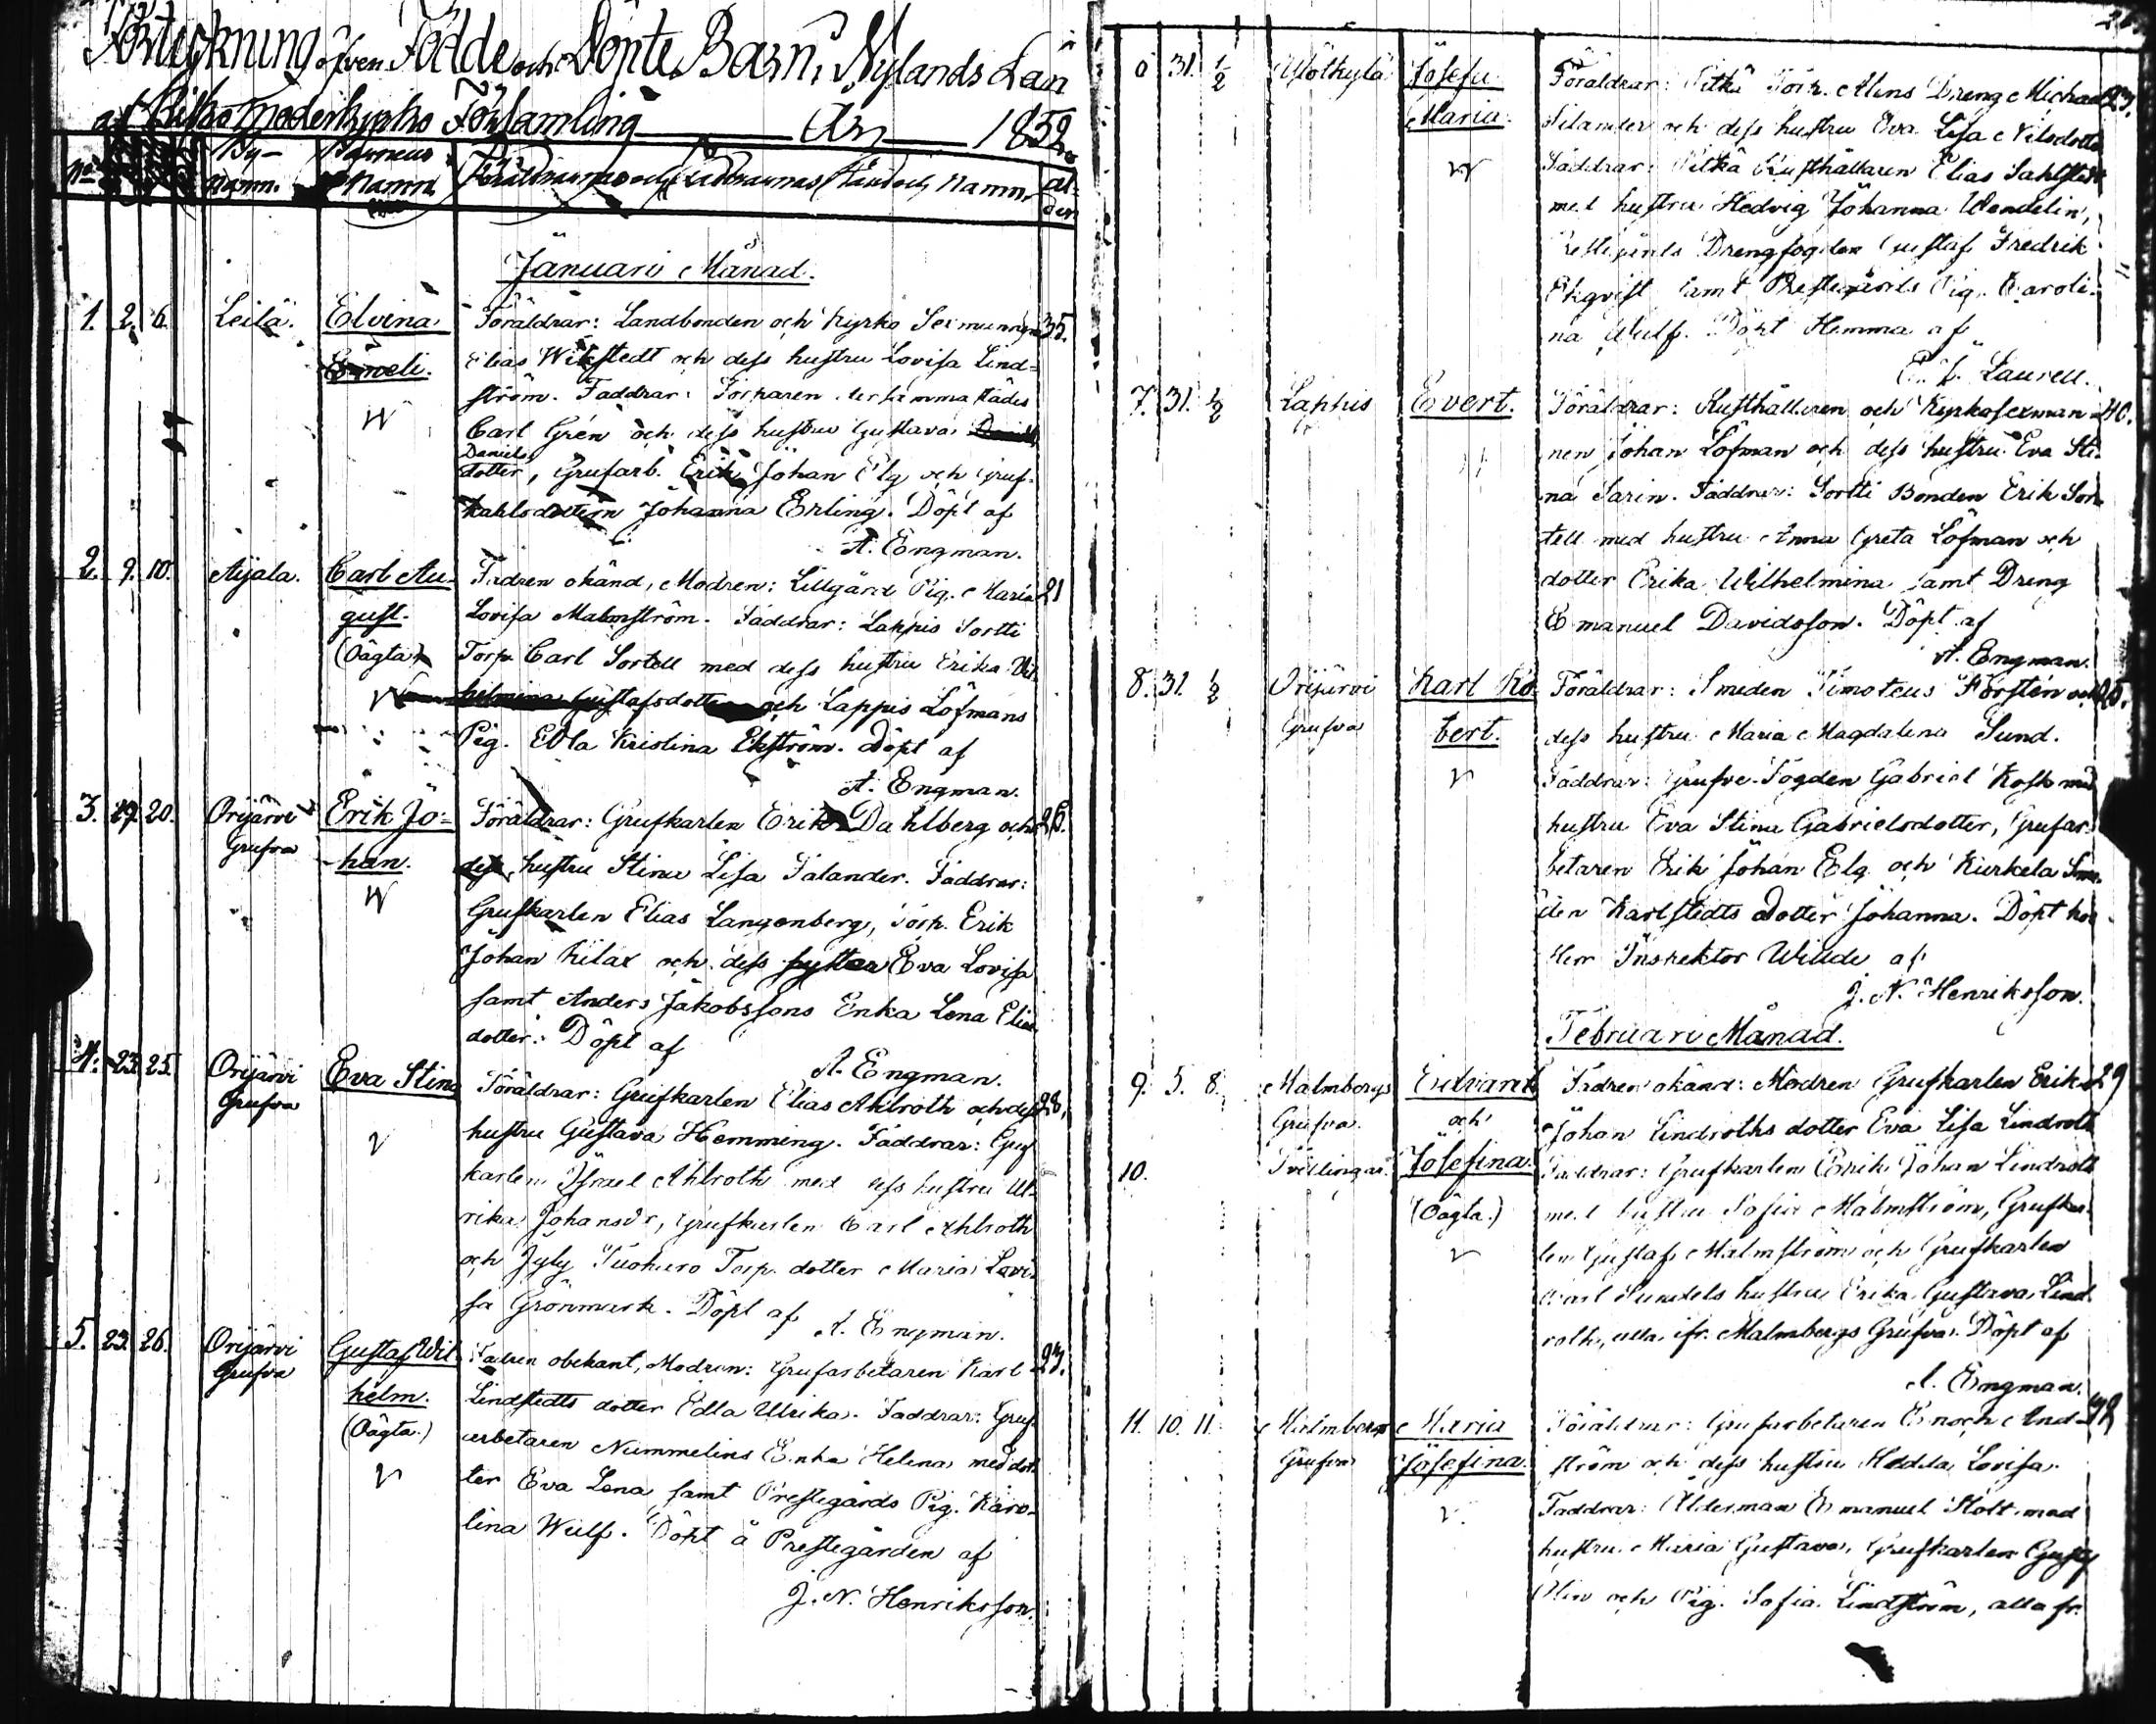 Förteckning öfven Födde och Döpte Barn i Nylands Län
af Kisko Moderkyrko Församling År 1852.
No By-namn. Barnens Namn Föräldrarnas och Faddrarnas Stånd och Namn. Ålder
Januari Månad.
1. 2. 6. Leilä. Elvina Föräldrar: Landbonden och Kyrko Sexmannen 35.
Emeli. Elias Wikstedt och dess hustru Lovisa Lind-
ström. Faddrar: Torparen dersamma städes
Carl Grén och dess hustru Gustava
Daniels
dotter, Grufarb. Erik Johan Elg och Gruf-
karlsdottern Johanna Erling. Döpt af
A. Engman.
2. 9. 10. Aijala. Carl Au- Fadren okänd, Modren: Lillgård Pig. Maria 21
gust. Lovisa Malmström. Faddrar: Lappis Sortti
(Oägta) Torp. Carl Sortell med dess hustru Erika Vil-
helmina Gustafsdotter och Lappis Löfmans
Pig. Edla Kristina Ekström. Döpt af
A. Engman.
3. 19. 20. Orijärvi Erik Jo- Föräldrar: Grufkarlen Erik Dahlberg och 26.
Grufva han. dess hustru Stina Lisa Salander. Faddrar:
Grufkarlen Elias Langenberg, Torp. Erik
Johan Kilax och dess syster Eva Lovisa
samt Anders Jakobssons Enka Lena Elias
dotter. Döpt af
A. Engman.
4. 23. 25. Orijärvi Eva Stina Föräldrar: Grufkarlen Elias Ahlroth och dess 28.
Grufva hustru Gustava Hemming. Faddrar: Gruf
karlen Israel Ahlroth med dess hustru Ul-
rika Johansdr, Grufkarlen Carl Ahlroth
och Jyly Tuohuro Torp. dotter Maria Lovi-
sa Grönmark. Döpt af
A. Engman.
5. 23. 26. Orijärvi Gustaf Wil- Fadren obekant, Modren: Grufarbetaren Karl 27.
Grufva helm. Lindstedts dotter Edla Ulrika. Faddrar: Gruf
(Oägta.) arbetaren Nummelins Enka Helena med dot-
ter Eva Lena samt Prestegårds Pig. Karo-
lina Wulf. Döpt å Prestegården af
J. N. Henriksson.
6 31. 1/2 Josefa Föräldrar: Pitkä Torp. Alens Dreng Michael 23.
Maria. Silander och dess hustru Eva Lisa Nilsdotter
Faddrar: Pitkä Rusthållaren Elias Sahlstedt
med hustru Hedvig Johanna Wendelin,
Prestegårds Drengfogden Gustaf Fredrik
Ekqvist samt Prestegårds Pig. Karoli-
na Wulf. Döpt Hemma af
Laurell.
7. 31. 1/2 Lappis Evert. Föräldrar: Rusthållaren och Kyrkosexman- 40.
nen Johan Löfman och dess hustru Eva Sti-
na Sarin. Faddrar: Sortti Bonden Erik Sor-
tell med hustru Anna Greta Löfman och
dotter Erika Wilhelmina samt Dreng
Emanuel Davidsson. Döpt af
A. Engman.
8. 31. 1/2 Orijärvi Karl Ro- Föräldrar: Smeden Timoteus Forstén och
Grufva bert. dess hustru Maria Magdalena Sund.
Faddrar: Grufve-Fogden Gabriel Kosk med
hustru Eva Stina Gabrielsdotter, Grufar-
betaren Erik Johan Elg och Kurkela Sme-
den Karlstedts dotter Johanna. Döpt hos
Herr Inspektor Willde af
J. N. Henriksson.
Februari Månad.
9. 5. 8. Malmbergs Edvard Fadren okänd: Modren Grufkarlen Erik 29
Grufva. och Johan Lindroths dotter Eva Lisa Lindroth
10. Tvillingar. Josefina. Faddrar: Grufkarlen Erik Johan Lindroth
(Oägta.) med hustru Sofia Malmström, Grufkar-
len Gustaf Malmström och Grufkarlen
Carl Sundels hustru Erika Gustava Lind-
roth, alla ifr. Malmbergs Grufva. Döpt af
A. Engman.
11. 10. 11. Malmbergs Maria Föräldrar: Grufarbetaren Enoch Lind-
Grufva Josefina. ström och dess hustru Hedda Lovisa.
Faddrar: Ålderman Emanuel Stolt med
hustru Maria Gustava, Grufkarlen Gustaf
och Pig. Sofia Lindström, alla fr.